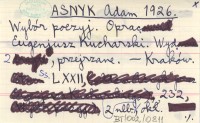 ASNYK Adam 1926.
Wybór poezyj. Oprac
Eugenjusz Kucharski. Wyd
2 przejrzane. – Kraków.
Ss. LXXII 232,
2 nlb. okł.
BT1002/0811